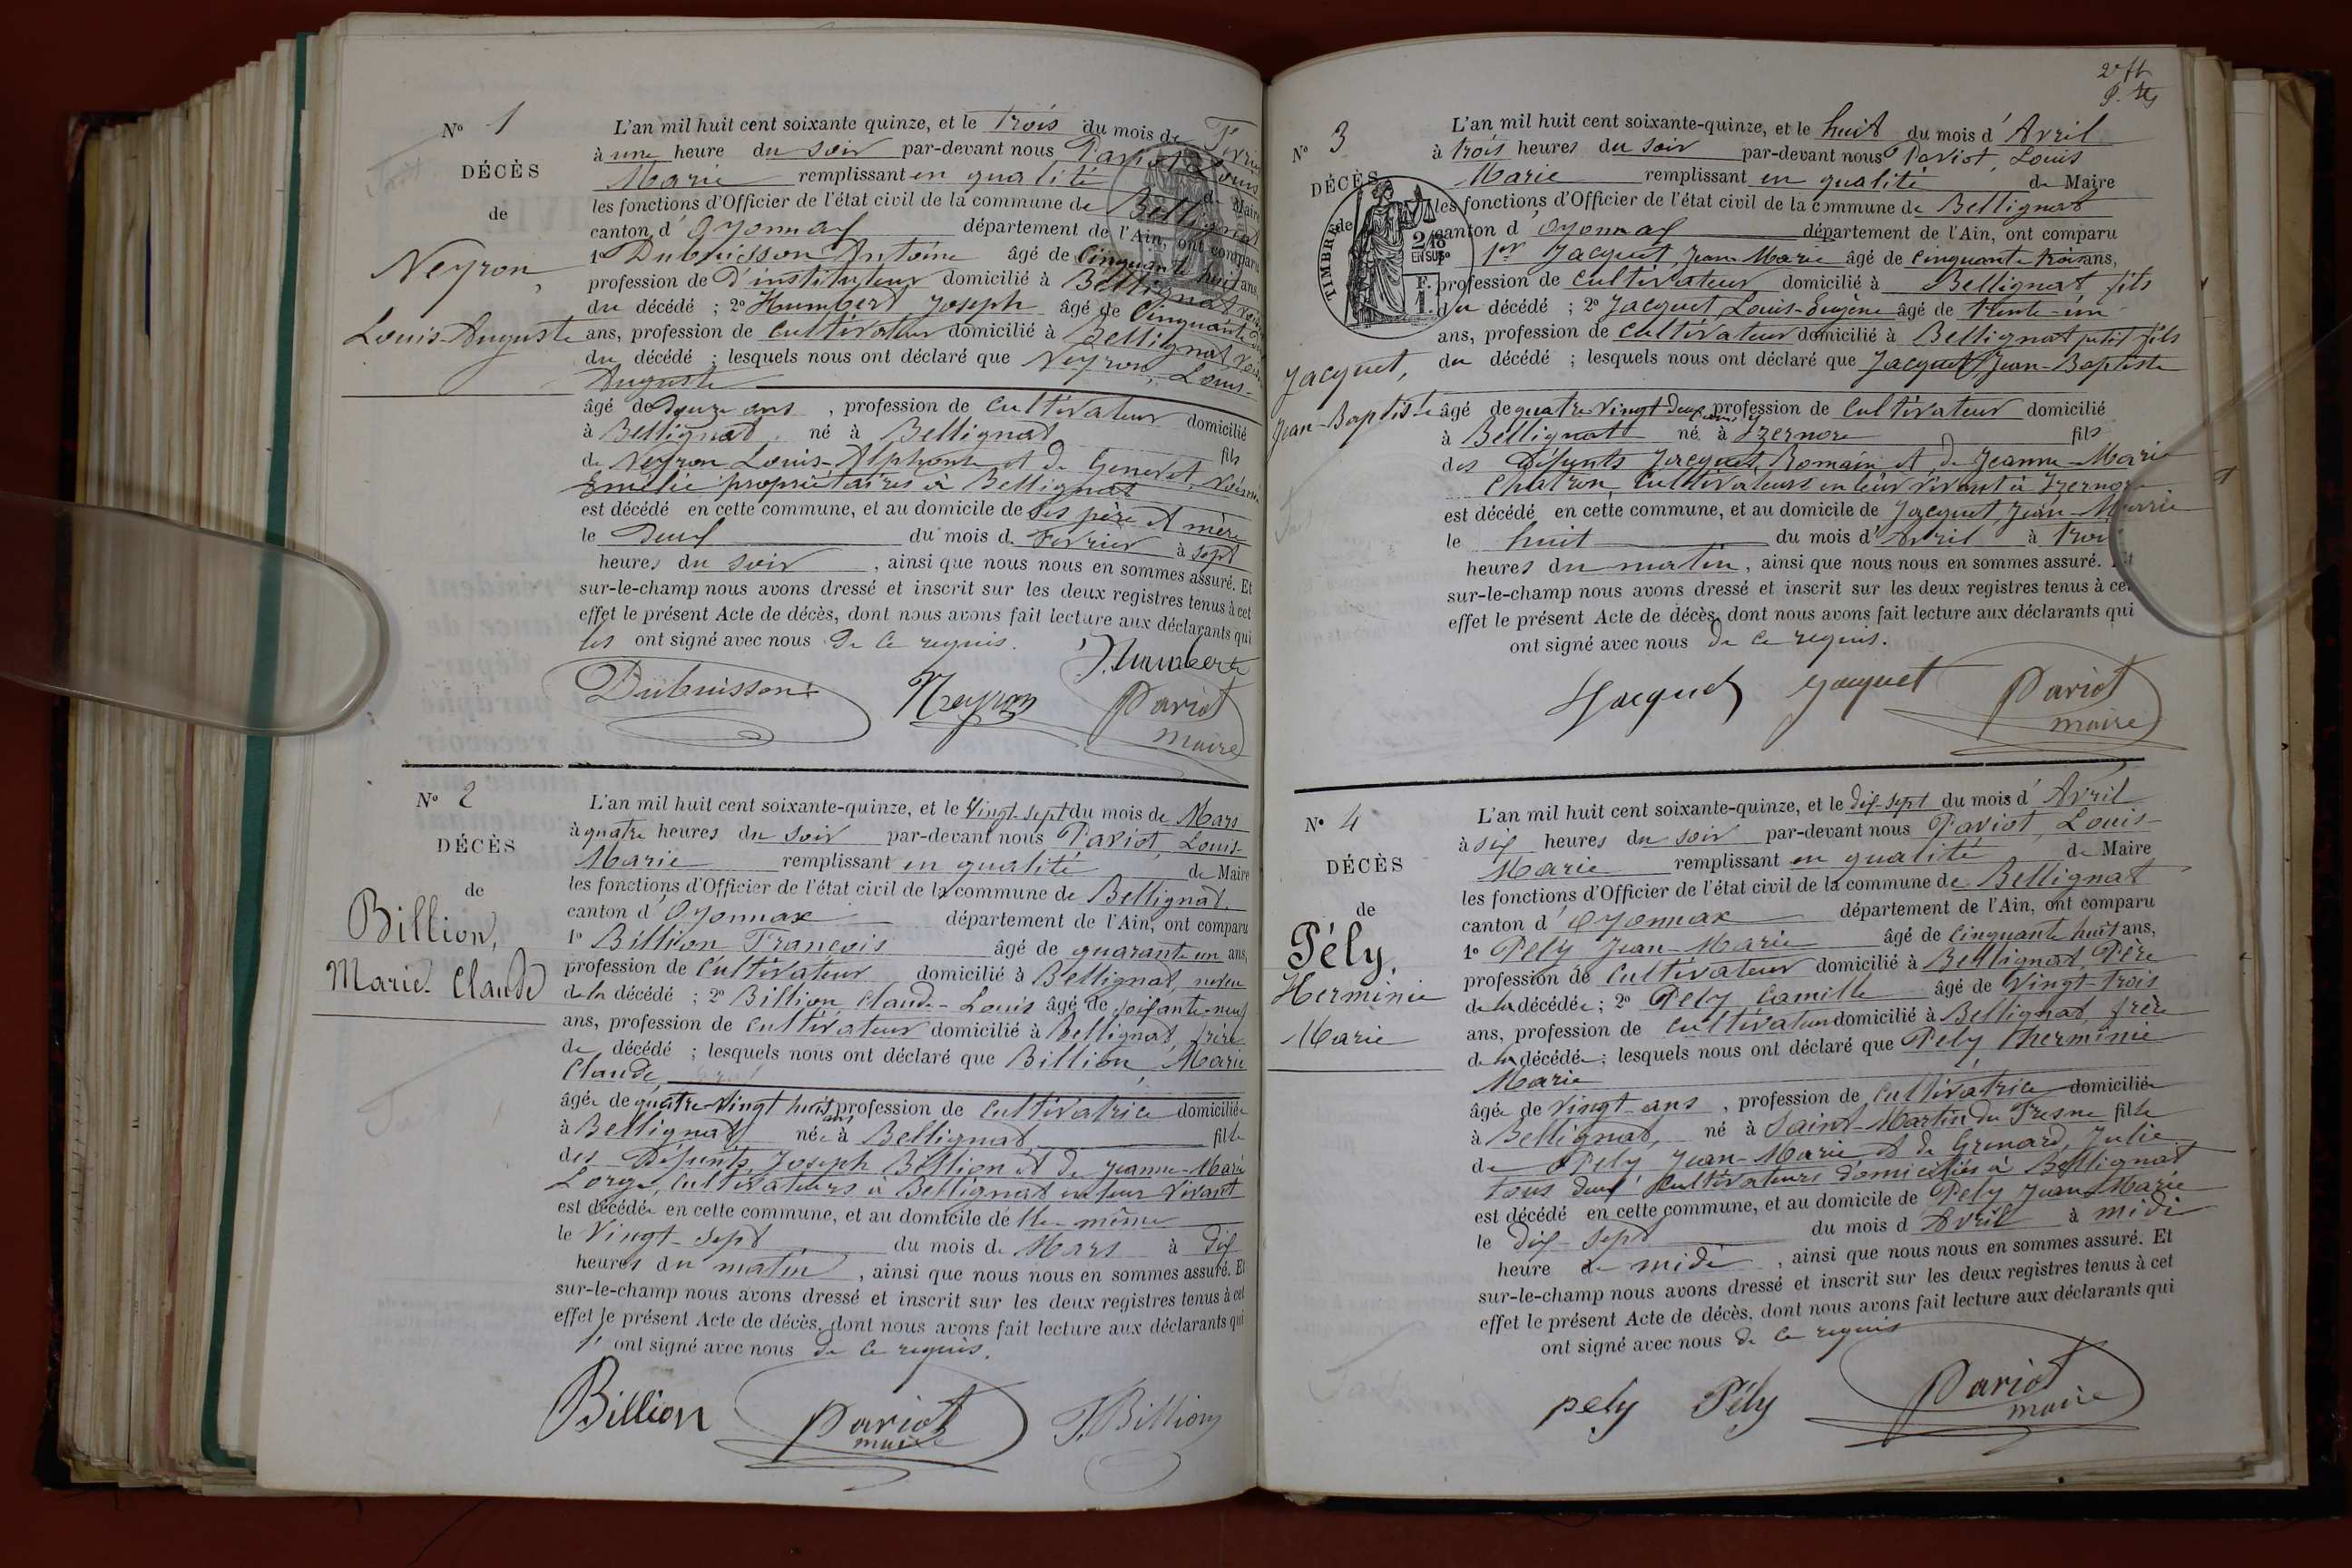 N° 1
DÉCÈS
de
Neyron,
Louis-Auguste
L'an mil huit cent soixante quinze, et le Trois du mois de Février
à une heure du soir par-devant nous Paviot Louis
Marie remplissant en qualité de Maire
les fonctions d'Officier de l'état civil de la commune de Bellignat
canton d'Oyonnax département de l'Ain, ont comparu
1° Dubuisson Antoine âgé de Cinquante huit ans,
profession de D'instituteur domicilié à Bellignat
du décédé ; 2° Humbert Joseph âgé de Cinquante
ans, profession de Cultivateur domicilié à Bellignat
du décédé ; lesquels nous ont déclaré que Neyron, Louis-
Auguste
âgé de Douze ans, profession de Cultivateur domicilié
à Bellignat, né à Bellignat fils
de Neyron Louis-Alphonse et de Genevet,
Emélie propriétaires à Bellignat
est décédé en cette commune, et au domicile de Ses père et mère
le Deux du mois de Février à sept
heures du soir, ainsi que nous nous en sommes assuré. Et
sur-le-champ nous avons dressé et inscrit sur les deux registres tenus à cet
effet le présent Acte de décès, dont nous avons fait lecture aux déclarants qui
les ont signé avec nous de ce requis.
J. Humbert
Dubuisson Neyron Paviot
maire
N° 2
DÉCÈS
de
Billion,
Marie-Claude
L'an mil huit cent soixante-quinze, et le Vingt-sept du mois de Mars
à quatre heures du soir par-devant nous Paviot, Louis-
Marie remplissant en qualité de Maire
les fonctions d'Officier de l'état civil de la commune de Bellignat
canton d'Oyonnax département de l'Ain, ont comparu
1° Billion François âgé de quarante un ans,
profession de Cultivateur domicilié à Bellignat, neveu
de la décédé ; 2° Billion, Claude-Louis âgé de soixante-neuf
ans, profession de Cultivateur domicilié à Bellignat, frère
de décédé ; lesquels nous ont déclaré que Billion, Marie
Claude
âgée de quatre-Vingt huit ans, profession de Cultivatrice domiciliée
à Bellignat, née à Bellignat fille
des Défunts Joseph Billion et de Jeanne-Marie
Lorge, Cultivateurs à Bellignat en leur Vivant
est décédée en cette commune, et au domicile de Elle-même
le Vingt-sept du mois de Mars à Dix
heures du matin, ainsi que nous nous en sommes assuré. Et
sur-le-champ nous avons dressé et inscrit sur les deux registres tenus à cet
effet le présent Acte de décès, dont nous avons fait lecture aux déclarants qui
l' ont signé avec nous de ce requis.
Billion Paviot F. Billion
maire
N° 3
DÉCÈS
de
Jacquet,
Jean-Baptiste
TIMBRE
2/10
EN SUS
F.
1
L'an mil huit cent soixante-quinze, et le huit du mois d'Avril
à trois heures du soir par-devant nous Paviot, Louis
Marie remplissant en qualité de Maire
les fonctions d'Officier de l'état civil de la commune de Bellignat
canton d'Oyonnax département de l'Ain, ont comparu
1er Jacquet, Jean-Marie âgé de Cinquante trois ans,
profession de Cultivateur domicilié à Bellignat fils
du décédé ; 2° Jacquet, Louis-Eugène âgé de trente-un
ans, profession de Cultivateur domicilié à Bellignat petit fils
du décédé ; lesquels nous ont déclaré que Jacquet, Jean-Baptiste
âgé de quatre-Vingt Deux ans, profession de Cultivateur domicilié
à Bellignat né à Izernore fils
des Défunts Jacquet, Romain et de Jeanne-Marie
Chatron, Cultivateurs en leur Vivant à Izernore
est décédé en cette commune, et au domicile de Jacquet, Jean-Marie
le huit du mois d'Avril à trois
heures du matin, ainsi que nous nous en sommes assuré. Et
sur-le-champ nous avons dressé et inscrit sur les deux registres tenus à cet
effet le présent Acte de décès, dont nous avons fait lecture aux déclarants qui
ont signé avec nous de ce requis.
Jacquet Jacquet Paviot
maire
N° 4
DÉCÈS
de
Pély,
Herminie
Marie
L'an mil huit cent soixante-quinze, et le dix-sept du mois d'Avril
à six heures du soir par-devant nous Paviot, Louis-
Marie remplissant en qualité de Maire
les fonctions d'Officier de l'état civil de la commune de Bellignat
canton d'Oyonnax département de l'Ain, ont comparu
1° Pely Jean-Marie âgé de Cinquante huit ans,
profession de Cultivateur domicilié à Bellignat, Père
de la décédée ; 2° Pely Camille âgé de Vingt-trois
ans, profession de Cultivateur domicilié à Bellignat, frère
de la décédée ; lesquels nous ont déclaré que Pely, Therminie
Marie
âgée de Vingt-ans, profession de Cultivatrice domiciliée
à Bellignat, né à Saint-Martin du Fresne fille
de Pely Jean-Marie et de Grenard, Julie
tous deux Cultivateurs domiciliés à Bellignat
est décédé en cette commune, et au domicile de Pely Jean-Marie
le Dix-sept du mois d'Avril à midi
heure de midi, ainsi que nous nous en sommes assuré. Et
sur-le-champ nous avons dressé et inscrit sur les deux registres tenus à cet
effet le présent Acte de décès, dont nous avons fait lecture aux déclarants qui
ont signé avec nous de ce requis
pely Pély Paviot
maire